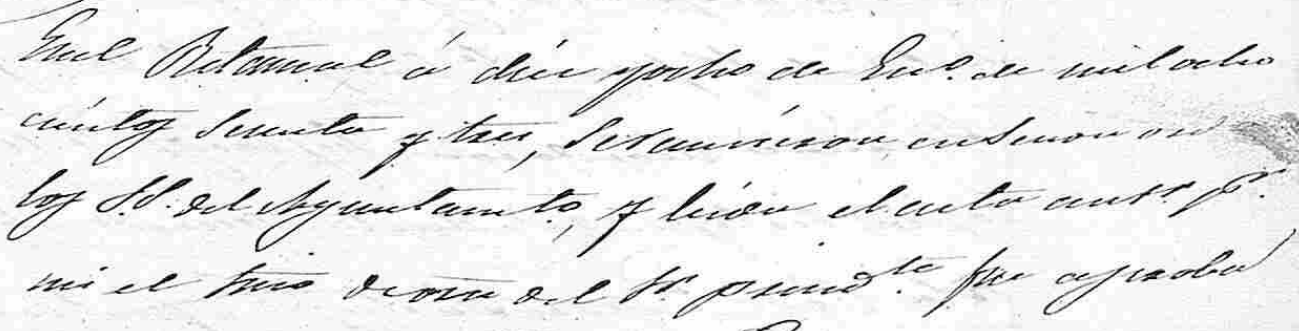 En el Retamal á diez y ocho de En.o de mil ocho
cientos sesenta y tres, se reunieron en sesion ord
los S.S. del Ayuntam.to, y leida el acta ant.r p.r
mi el Srio de orn del Sr. presid.te fue aproba